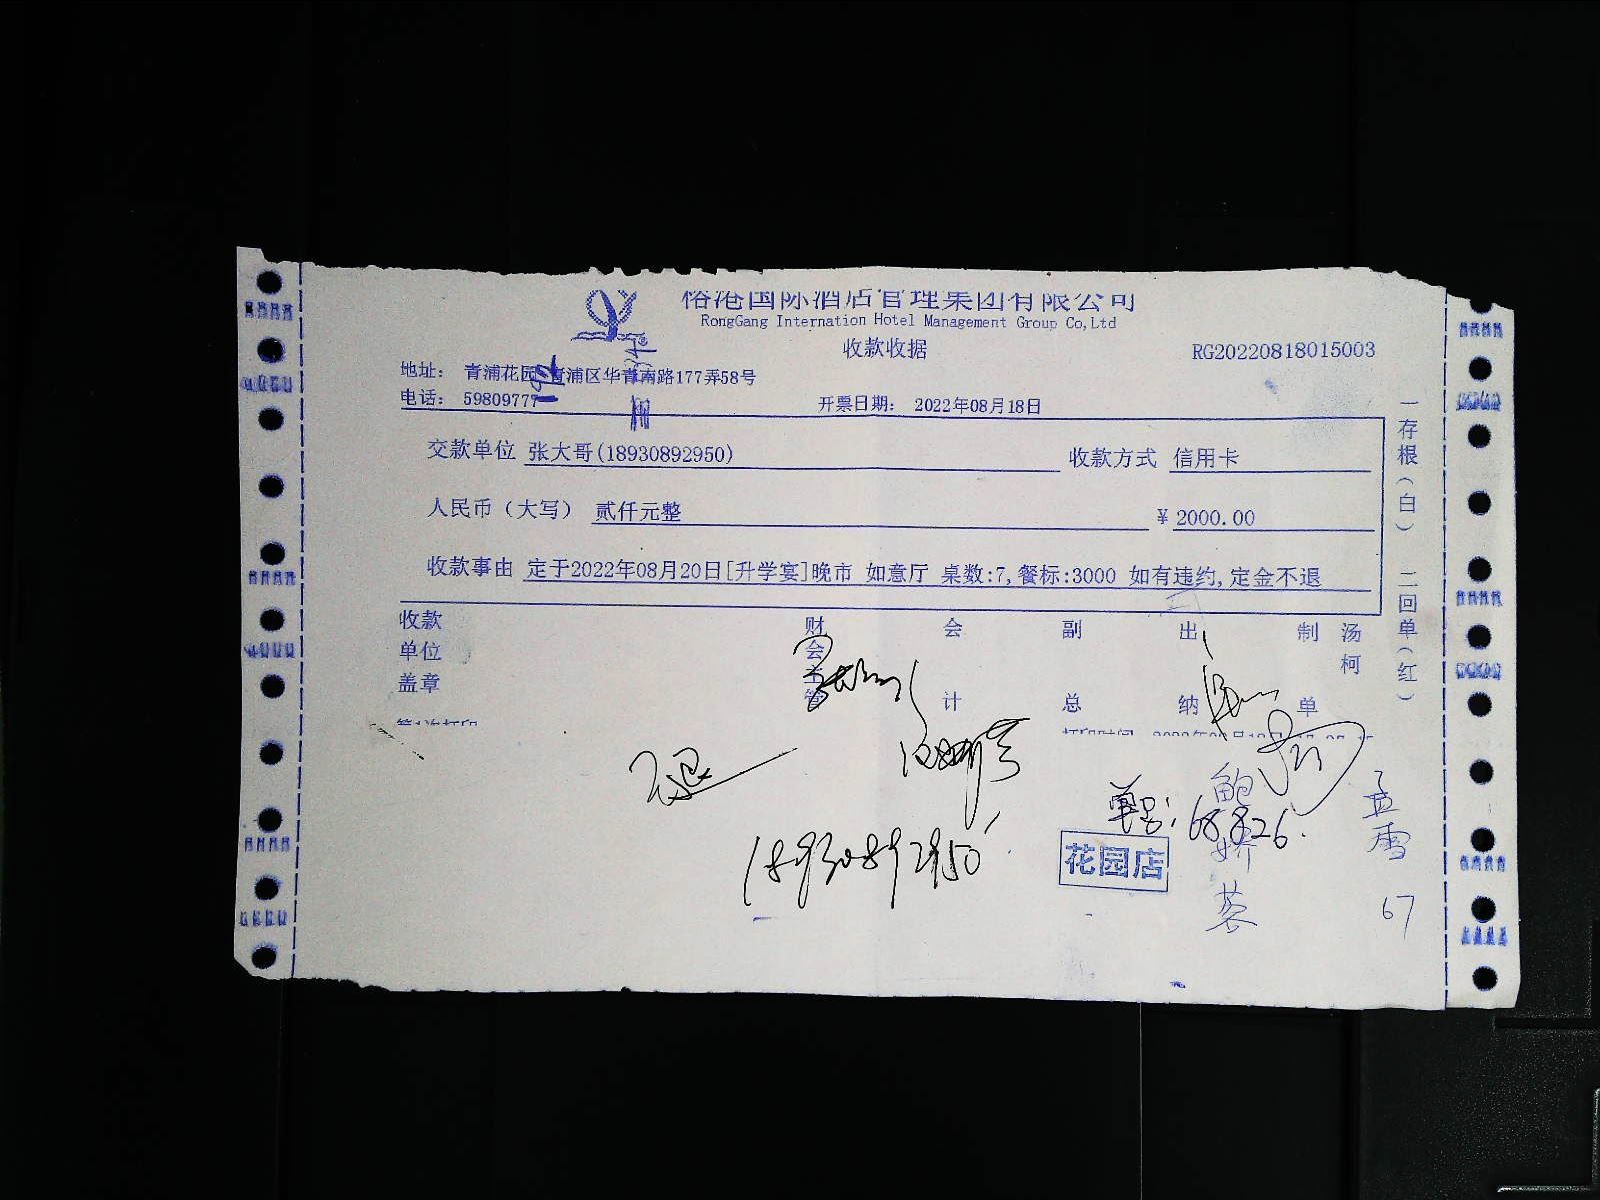 榕港国际酒店管理集团有限公司
RongGang Internation Hotel Management Group Co,Ltd
收款收据
RG20220818015003
地址： 青浦花园 青浦区华青南路177弄58号
电话： 59809777
开票日期： 2022年08月18日
交款单位 张大哥(18930892950) 收款方式 信用卡
人民币（大写） 贰仟元整 ¥ 2000.00
收款事由 定于2022年08月20日[升学宴]晚市 如意厅 桌数:7,餐标:3000 如有违约,定金不退
一存根（白） 二回单（红）
收款单位盖章 财会主管 会计 副总 出纳 制单 汤柯
已退
单号：68826.
18930892950
花园店
鲍娇蓉
孟雪
67